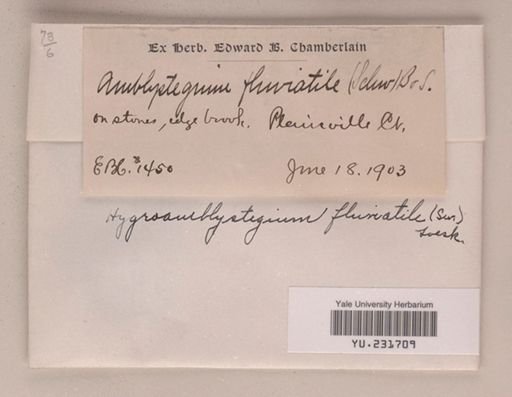 73
6
Ex Herb. Edward B. Chamberlain
Amblystegium fluviatile (Schw) B&S.
on stones, edge brook. Plainville Ct.
EBC. 1450
June 18. 1903
Hygroamblystegium fluviatile (Sw.)
Loesk.
Yale University Herbarium
YU.231709